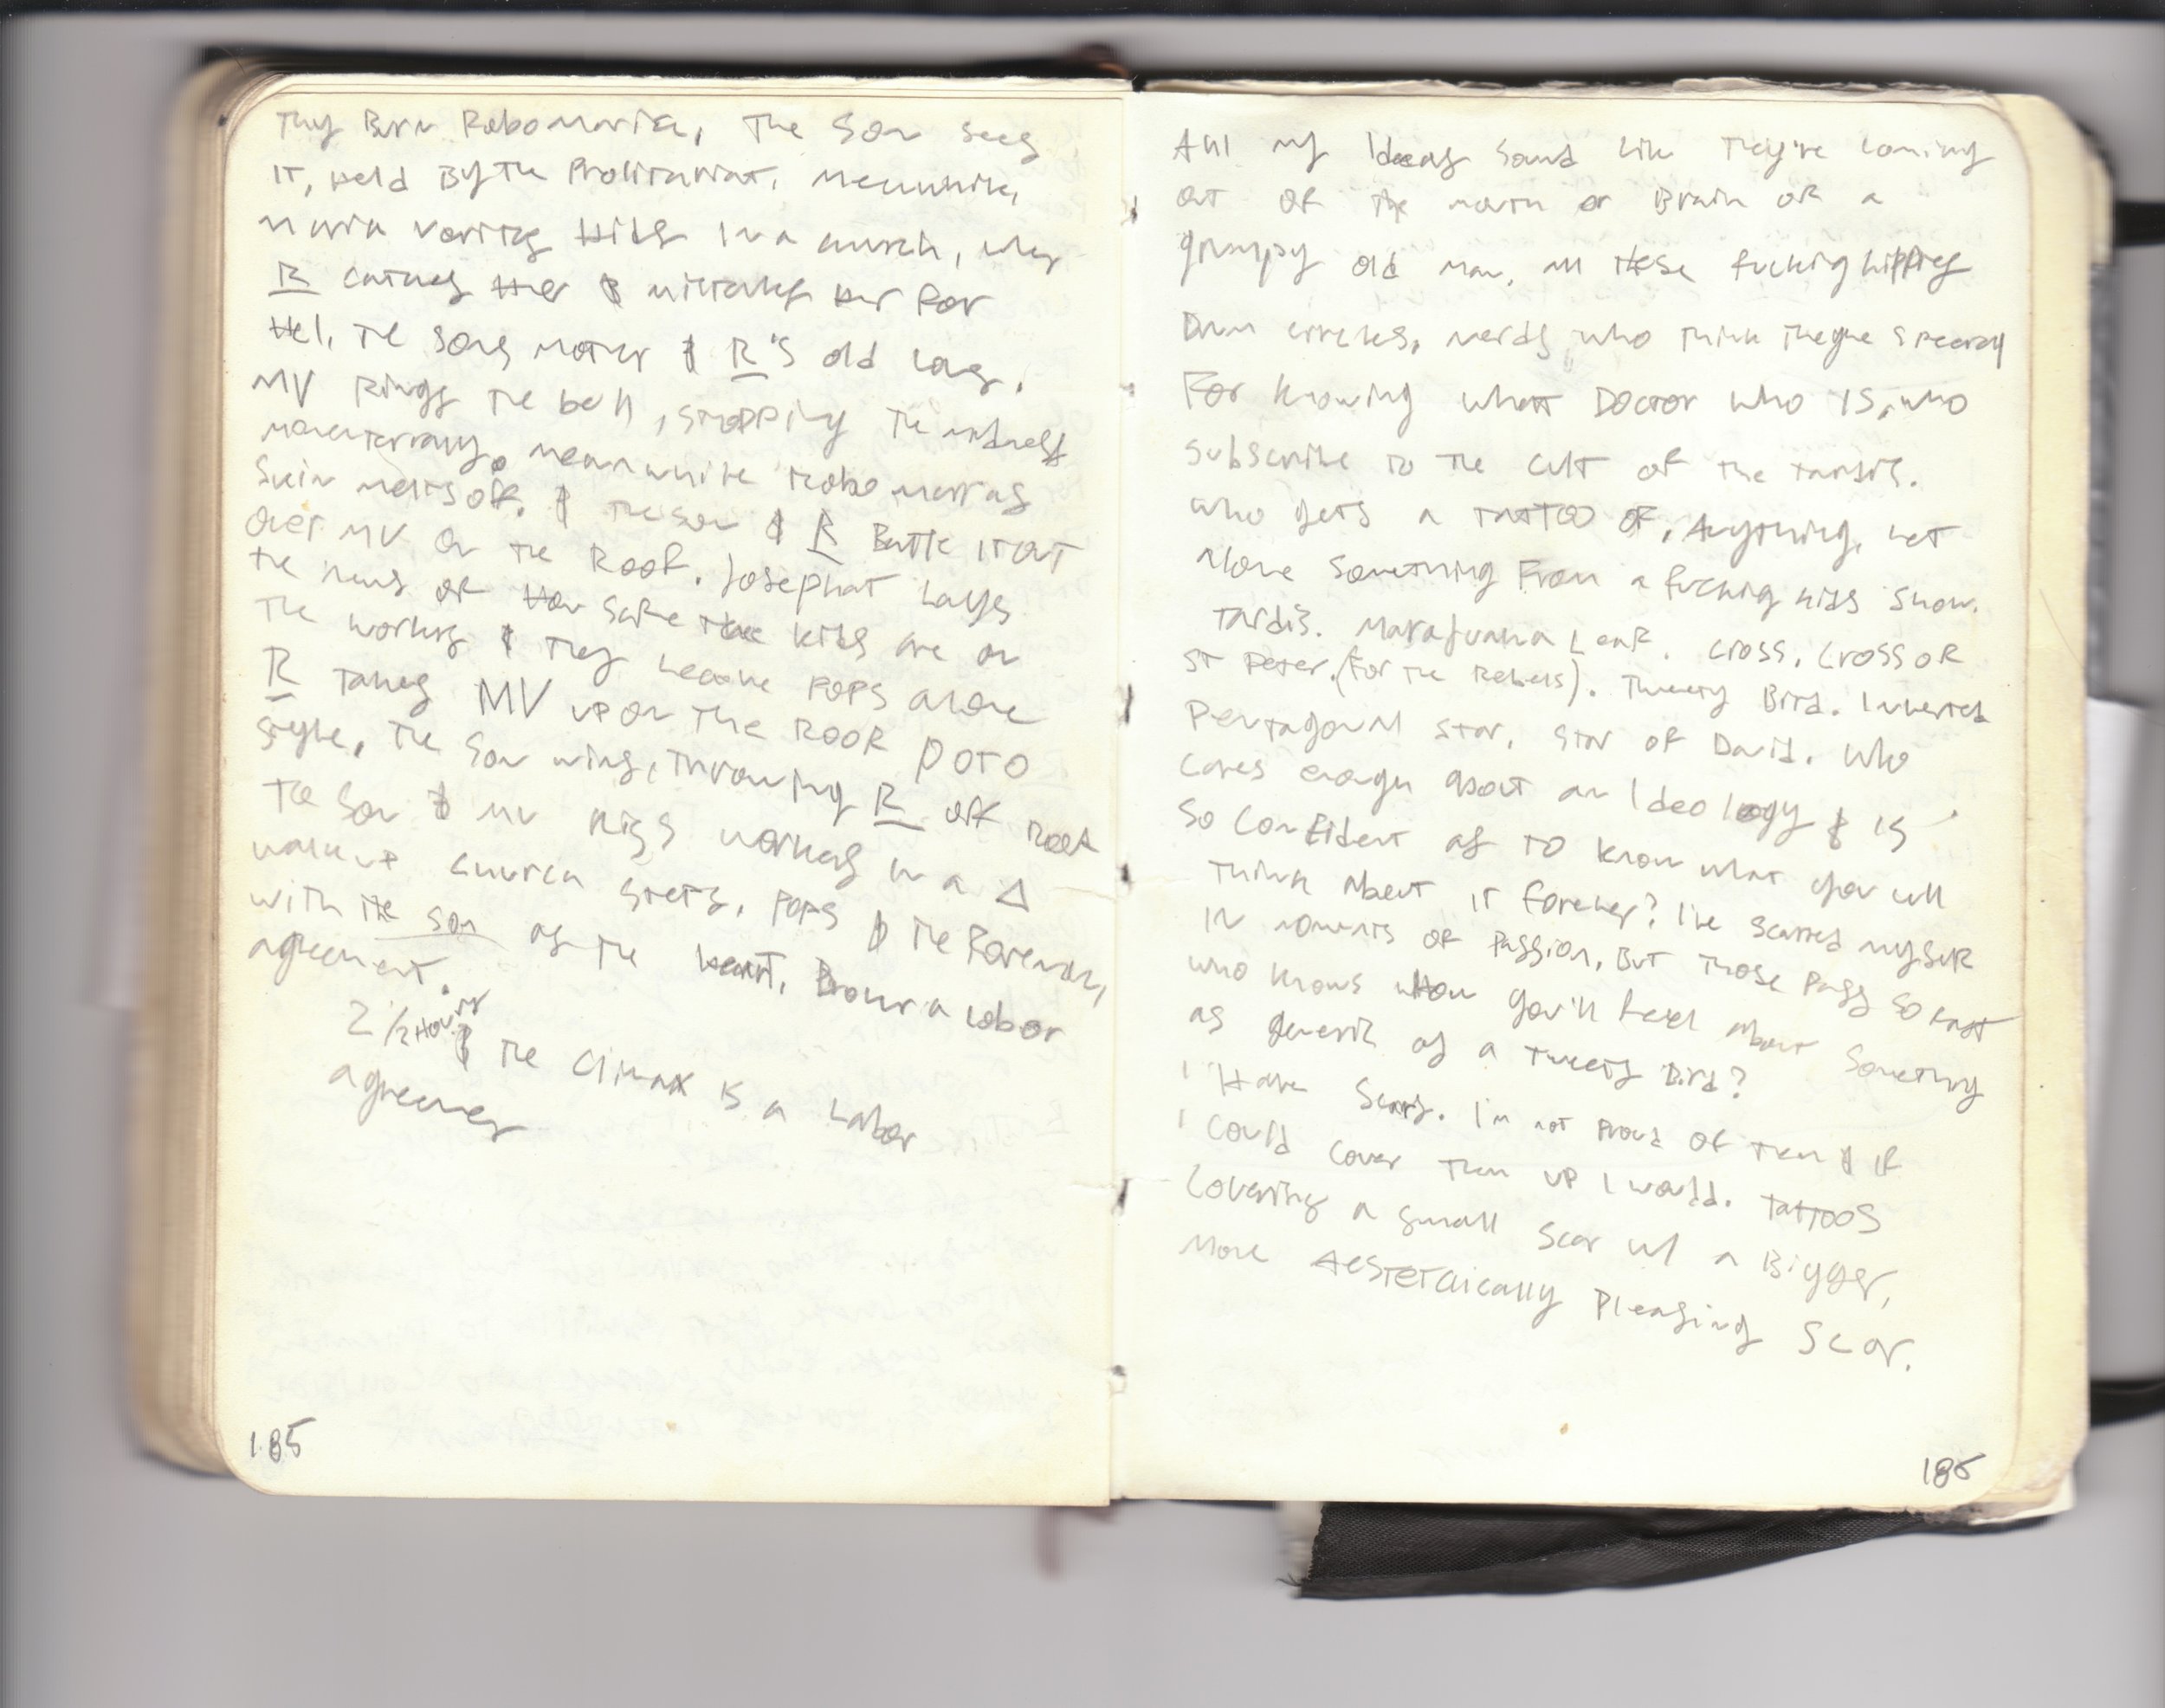 They Burn RoboMaria, The Son sees
IT, Held By The Prolitariat. Meanwhile,
Maria Hides In a church,
R catches Her & mistakes Her For
Hel, The Sons mother & R's old Love.
MV Rings The bell, stopping The
momentarily. meanwhile Robo marias
Skin melts off. & The Son & R Battle IT out
over MV on the Roof. Josephat Lays
the news of How Safe the kids are on
The workers & They Leave POPS alone
R Takes MV up on The Roof POTO
Style, The Son wins, Throwing R off Roof
The Son & MV Kiss workers in a △
walk up church steps, POPS & The Foreman,
with the son as the Heart, Broker a Labor
agreement.
2 1/2 Hours
& The Climax is a Labor
agreement
185
All my Ideas sound like They're coming
out of the mouth or Brain of a
grumpy old man, all these fucking hippies
Drum circles, nerds who think they're special
For knowing what Doctor Who IS, who
subscribe to the cult of the tardis.
who gets a TATTOO OF, Anything, Let
Alone something From a fucking kids show.
Tardis. Marajuana Leaf. Cross. Cross of
ST Peter. (For The Rebels). Tweety Bird. Inverted
Pentagonal Star. Star of David. Who
cares enough about an Ideology & is
so Confident as to know what you will
think about it forever? I've scarred myself
IN moments of Passion, But Those Pass so fast
who knows How you'll feel about something
as generic as a Tweety Bird?
I Have Scars. I'm not Proud of Them & if
I could cover Them up I would. Tattoos
Covering a small scar w/ a Bigger,
more Aestetchically Pleasing Scar.
186